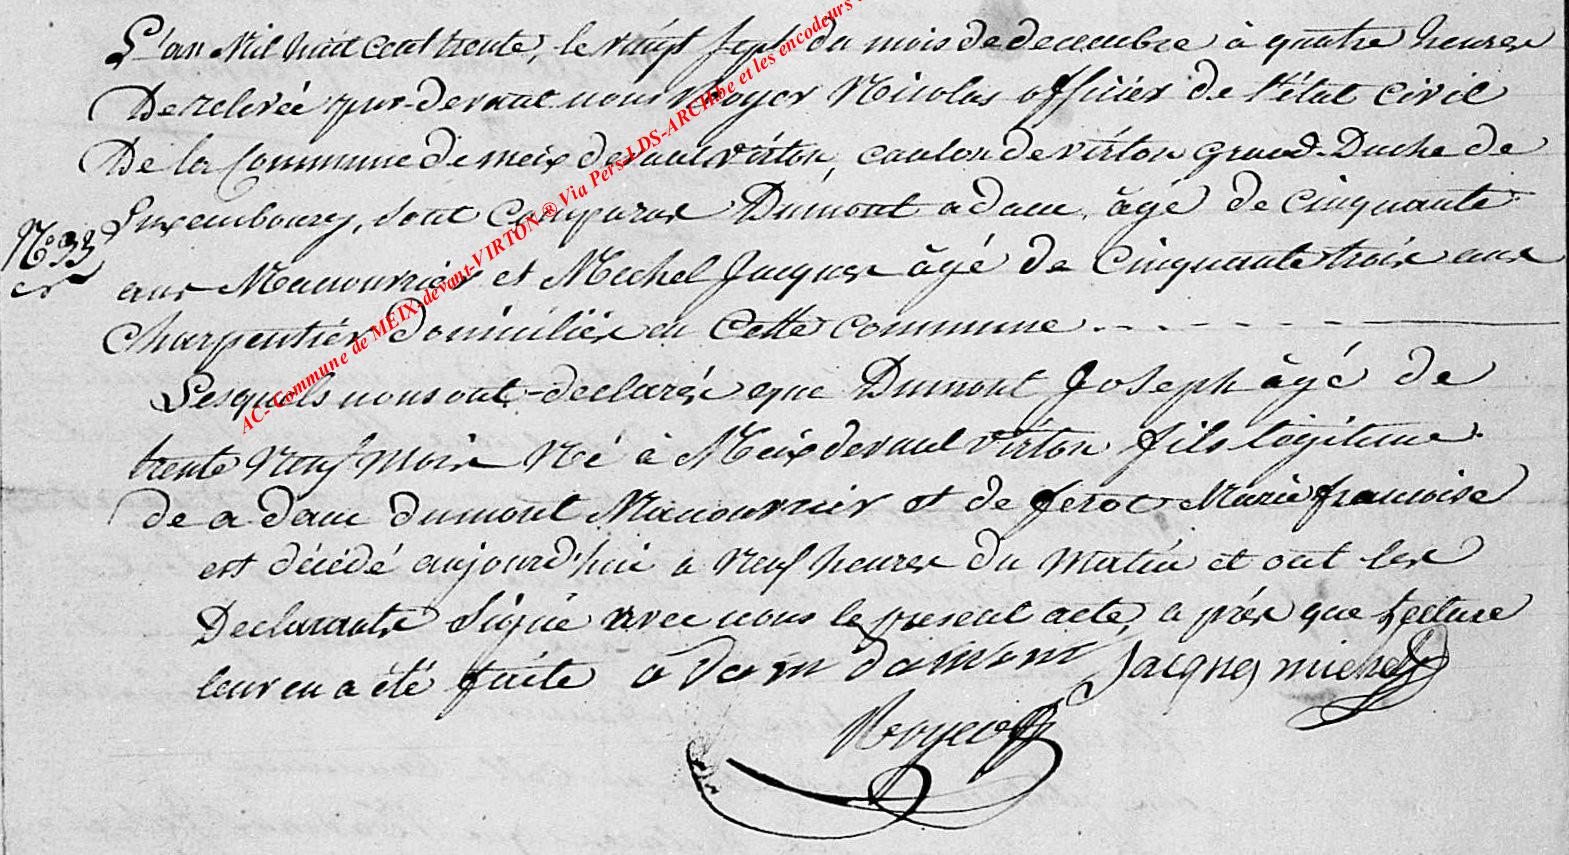 L'an Mil huit cent trente, le vingt sept du mois de decembre à quatre heures
De relevée par-devant nous Noyer Nicolas officier de l'état civil
De la Commune de meix devant virton, canton de virton Grand-Duche de
Luxembourg, sont Comparus Dumont adam, âgé de Cinquante
N° 33
ans Manouvrier et Michel Jacques âgé de Cinquante trois ans
Charpentier domiciliés en Cette Commune
Lesquels nous ont declarés que Dumont Joseph âgé de
trente Neuf Mois Né à Meix devant Virton fils légitime
de adam dumont Manouvrier et de ferot Marie françoise
est décédé aujourd'hui a Neuf heures du Matin et ont les
Declarants Signé avec nous le present acte, a près que Lecture
leur en a été faite adam dumont Jacques michel
Noyer
AC- Commune de MEIX-devant-VIRTON ® Via Pers-LDS-ARCHbe et les encodeurs